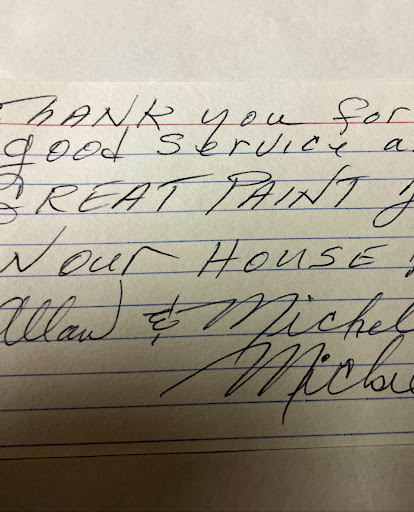 Thank you for
good service a
GREAT PAINT J
N our HOUSE
Allan & Michel